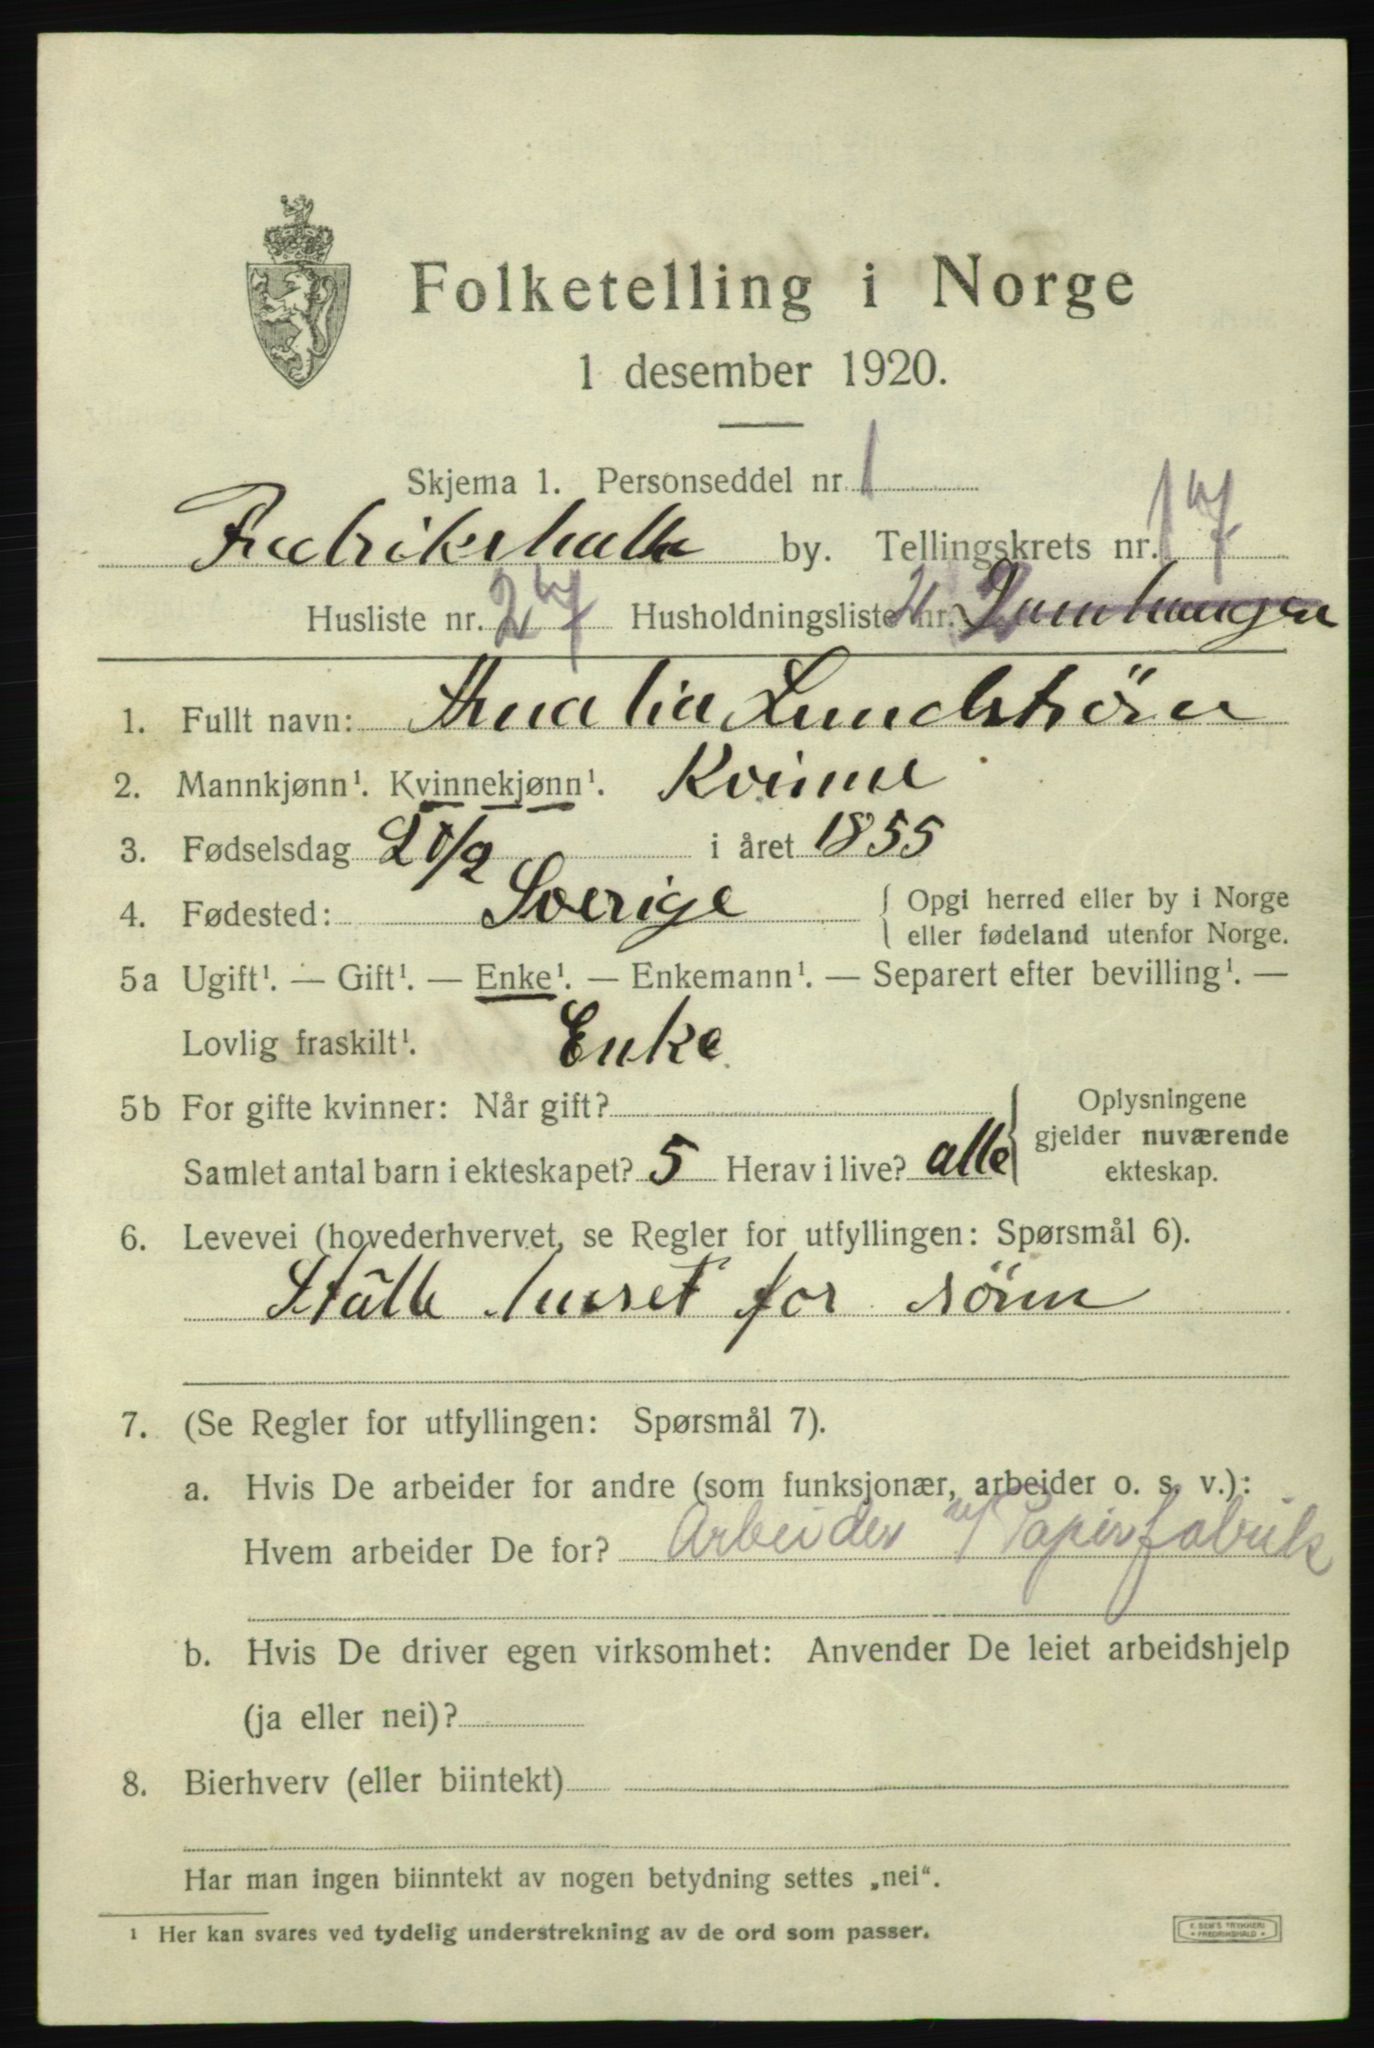 Folketelling i Norge
1 desember 1920.
Skjema 1. Personseddel nr. 1
Fredrikshalls by. Tellingskrets nr. 17
Husliste nr. 27 Husholdningsliste nr. 2
1. Fullt navn: Amalia Lundström
2. Mannkjønn¹. Kvinnekjønn¹. Kvinne
3. Fødselsdag i året 1855
4. Fødested: Sverige { Opgi herred eller by i Norge
eller fødeland utenfor Norge.
5a Ugift¹. — Gift¹. — Enke¹. — Enkemann¹. — Separert efter bevilling¹. —
Lovlig fraskilt¹. Enke
5b For gifte kvinner: Når gift? } Oplysningene
gjelder nuværende
Samlet antal barn i ekteskapet? 5 Herav i live? alle
ekteskap.
6. Levevei (hovederhvervet, se Regler for utfyllingen: Spørsmål 6).
huset for sönn
7. (Se Regler for utfyllingen: Spørsmål 7).
a. Hvis De arbeider for andre (som funksjonær, arbeider o. s. v.):
Hvem arbeider De for? Arbeider v/ Papirfabrik
b. Hvis De driver egen virksomhet: Anvender De leiet arbeidshjelp
(ja eller nei)?
8. Bierhverv (eller biintekt)
Har man ingen biinntekt av nogen betydning settes „nei“.
¹ Her kan svares ved tydelig understrekning av de ord som passer.
E. SEM'S TRYKKERI
• FREDRIKSHALD •